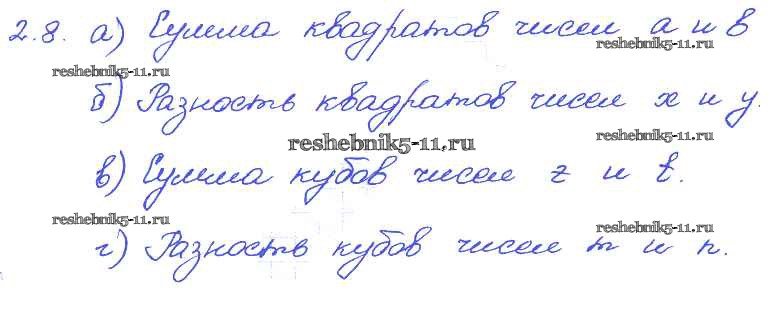 2.8. а) Сумма квадратов чисел a и b
reshebnik5-11.ru
reshebnik5-11.ru
б) Разность квадратов чисел x и y.
reshebnik5-11.ru
reshebnik5-11.ru
в) Сумма кубов чисел z и t.
reshebnik5-11.ru
reshebnik5-11.ru
г) Разность кубов чисел m и n.